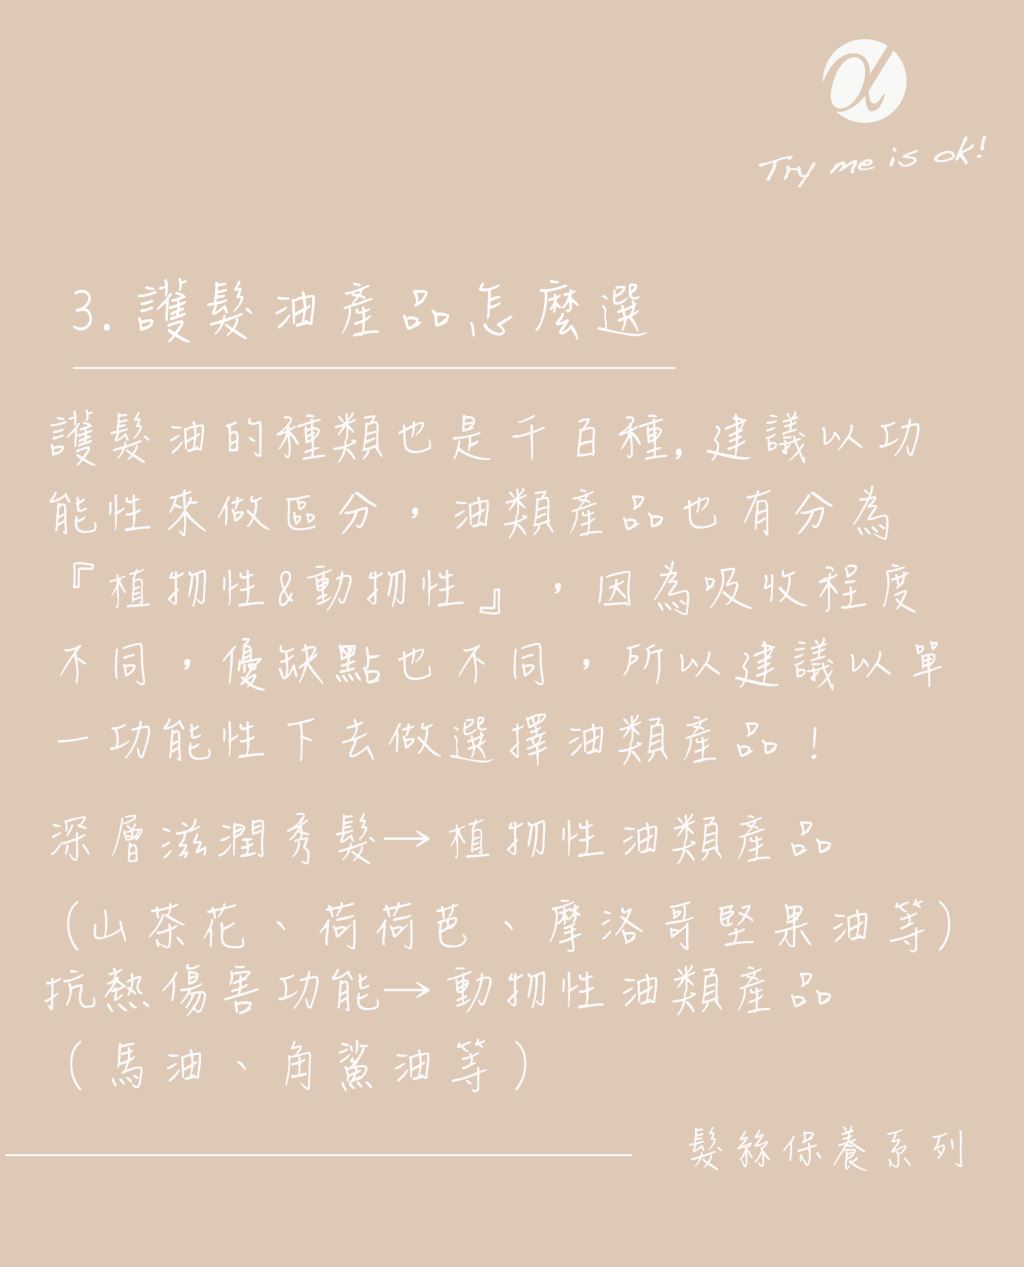 α
Try me is ok!
3. 護髮油產品怎麼選
護髮油的種類也是千百種, 建議以功
能性來做區分，油類產品也有分為
『植物性&動物性』，因為吸收程度
不同，優缺點也不同，所以建議以單
一功能性下去做選擇油類產品！
深層滋潤秀髮→植物性油類產品
（山茶花、荷荷芭、摩洛哥堅果油等）
抗熱傷害功能→動物性油類產品
（馬油、角鯊油等）
髮絲保養系列